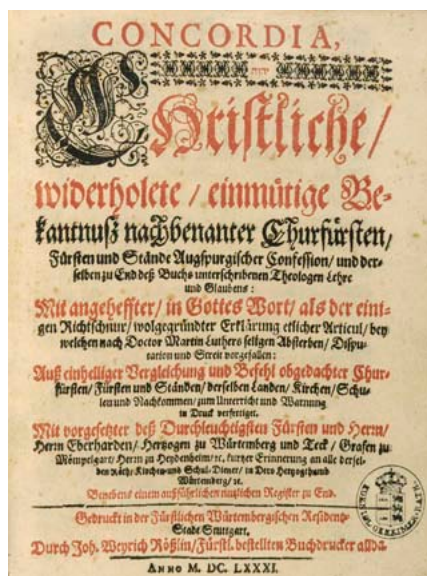 CONCORDIA,
יהוה
Christliche/
widerholete / einmütige Be-
kantnuß nachbenanter Churfürsten/
Fürsten und Stände Augspurgischer Confession/ und der-
selben zu End deß Buchs unterschribenen Theologen Lehre
und Glaubens:
Mit angeheffter/ in Gottes Wort/ als der eini-
gen Richtschnur/ wolgegründter Erklärung etlicher Articul/ bey
welchen nach Doctor Martin Luthers seligen Absterben/ Dispu-
tation und Streit vorgefallen:
Auß einhelliger Vergleichung und Befehl obgedachter Chur-
fürsten/ Fürsten und Ständen/ derselben Landen/ Kirchen/ Schu-
len und Nachkommen/ zum Unterricht und Warnung
in Druck verfertiget.
Mit vorgesetzter deß Durchleuchtigsten Fürsten und Herrn/
Herrn Eberharden/ Hertzogen zu Würtemberg und Teck/ Grafen zu
Mömpelgart/ Herrn zu Heydenheim/ ꝛc. kurtzer Erinnerung an alle dersel-
ben Räth/ Kirchen- und Schul-Diener/ in Dero Hertzogthumb
Würtemberg/ ꝛc.
Benebens einem außführlichen nutzlichen Register zu End.
Gedruckt in der Fürstlichen Würtembergischen Residentz-
Stadt Stuttgart,
Durch Joh. Weyrich Rößlin/ Fürstl. bestellten Buchdrucker allda.
ANNO M. DC. LXXXI.